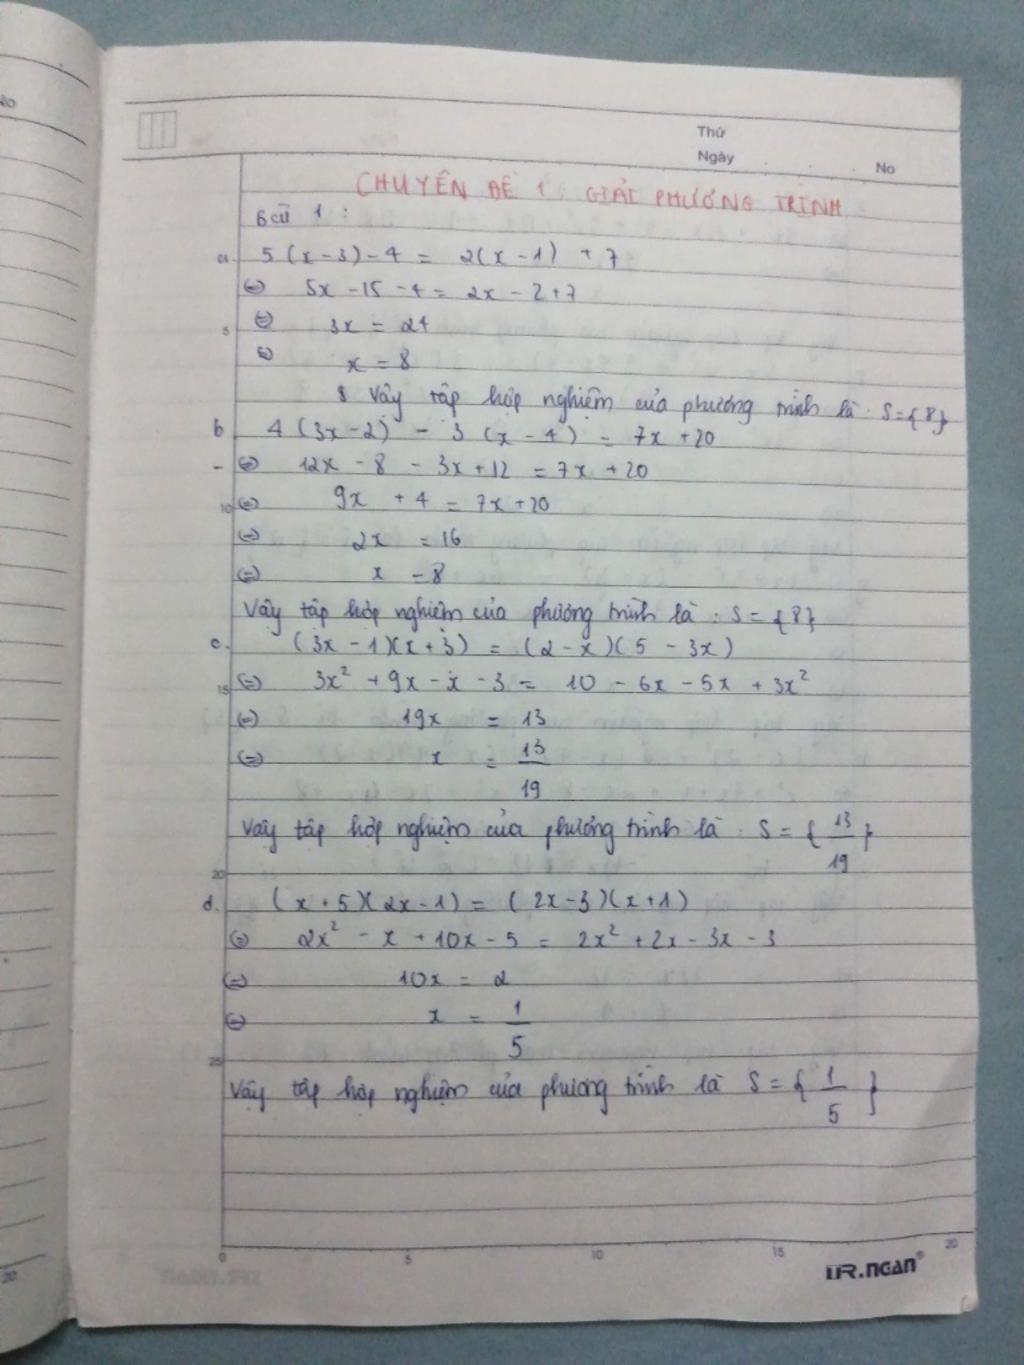 No
Thứ
Ngày
No
CHUYÊN ĐỀ 1 : GIẢI PHƯƠNG TRÌNH
Bài 1 :
a. 5(x-3)-4 = 2(x-1) + 7
(=) 5x -15 -4 = 2x - 2+7
5 (=) 3x = 24
(=) x = 8
Vậy tập hợp nghiệm của phương trình là : S={8}
b 4(3x-2) - 3(x-4) = 7x+20
(=) 12x - 8 - 3x+12 = 7x +20
10 (=) 9x + 4 = 7x+20
(=) 2x = 16
(=) x = 8
Vậy tập hợp nghiệm của phương trình là : S = {8}
c. (3x-1)(x+3) = (2-x)(5-3x)
15 (=) 3x² + 9x - x - 3 = 10 - 6x - 5x + 3x²
(=) 19x = 13
(=) x = 13/19
Vậy tập hợp nghiệm của phương trình là : S = { 13/19 }
20
d. (x+5)(2x-1) = (2x-3)(x+1)
(=) 2x² - x + 10x - 5 = 2x² + 2x - 3x - 3
(=) 10x = 2
(=) x = 1/5
25
Vậy tập hợp nghiệm của phương trình là S = { 1/5 }
0 5 10 15 20
UR.NGAN®
30